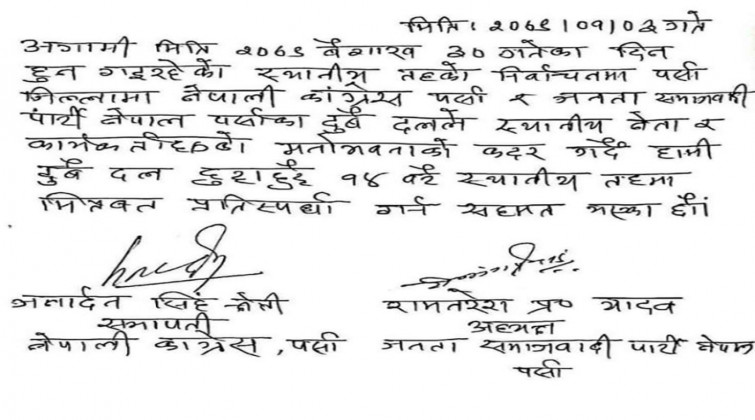 मिति: २०७९।०१।०३ गते
अगामी मिति २०७९ बैशाख ३० गतेका दिन
हुन गइरहेको स्थानीय तहको निर्वाचनमा पर्सा
जिल्लामा नेपाली कांग्रेस पर्सा र जनता समाजवादी
पार्टी नेपाल पर्साका दुबै दलले स्थानीय नेता र
कार्यकर्ताहरुको मनोभवनाको कदर गर्दै हामी
दुबै दल छुट्टाछुट्टै १४ वटै स्थानीय तहमा
मित्रवत प्रतिस्पर्धा गर्न सहमत भएका छौं।
जनार्दन सिंह क्षेत्री
सभापती
नेपाली कांग्रेस, पर्सा
रामनरेश प्र० यादव
अध्यक्ष
जनता समाजवादी पार्टी नेपाल
पर्सा